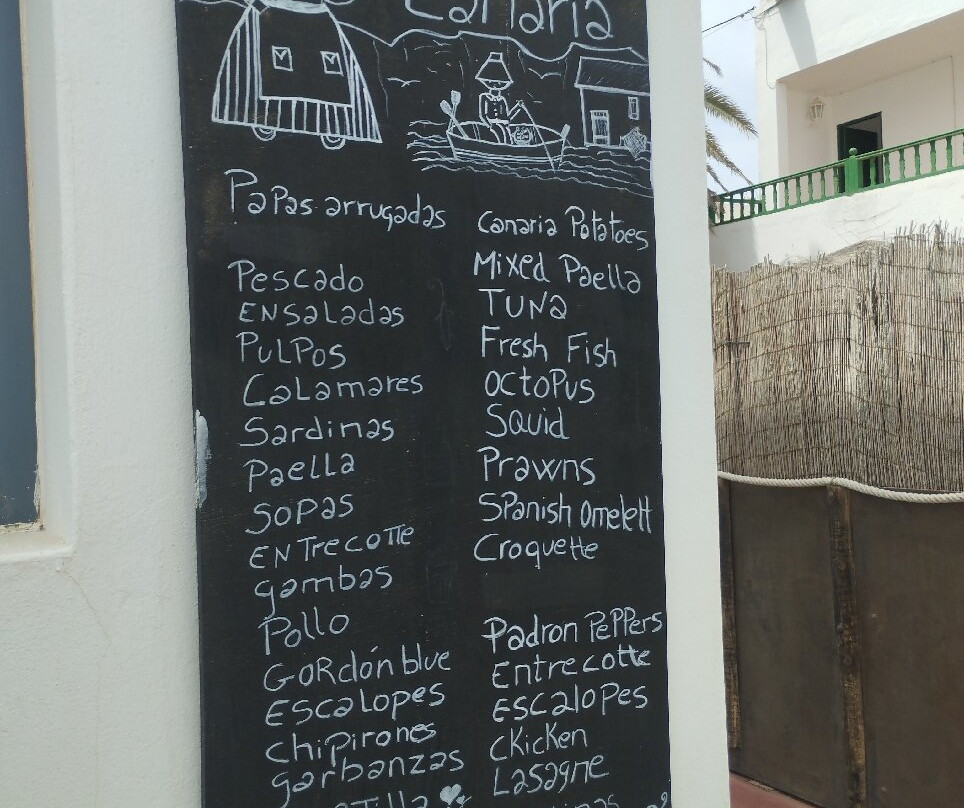 Canaria
Papas arrugadas
Pescado
ENsaladas
PULPOS
Calamares
Sardinas
Paella
SOPAS
ENTrecoTTe
gambas
Pollo
GORdón blue
Escalopes
chipirones
garbanzas
Canaria Potatoes
Mixed Paella
TUNa
Fresh Fish
OctoPus
Squid
Prawns
SPanish omelett
Croquette
Padron PePPers
Entrecotte
Escalopes
CKicKen
Lasagne